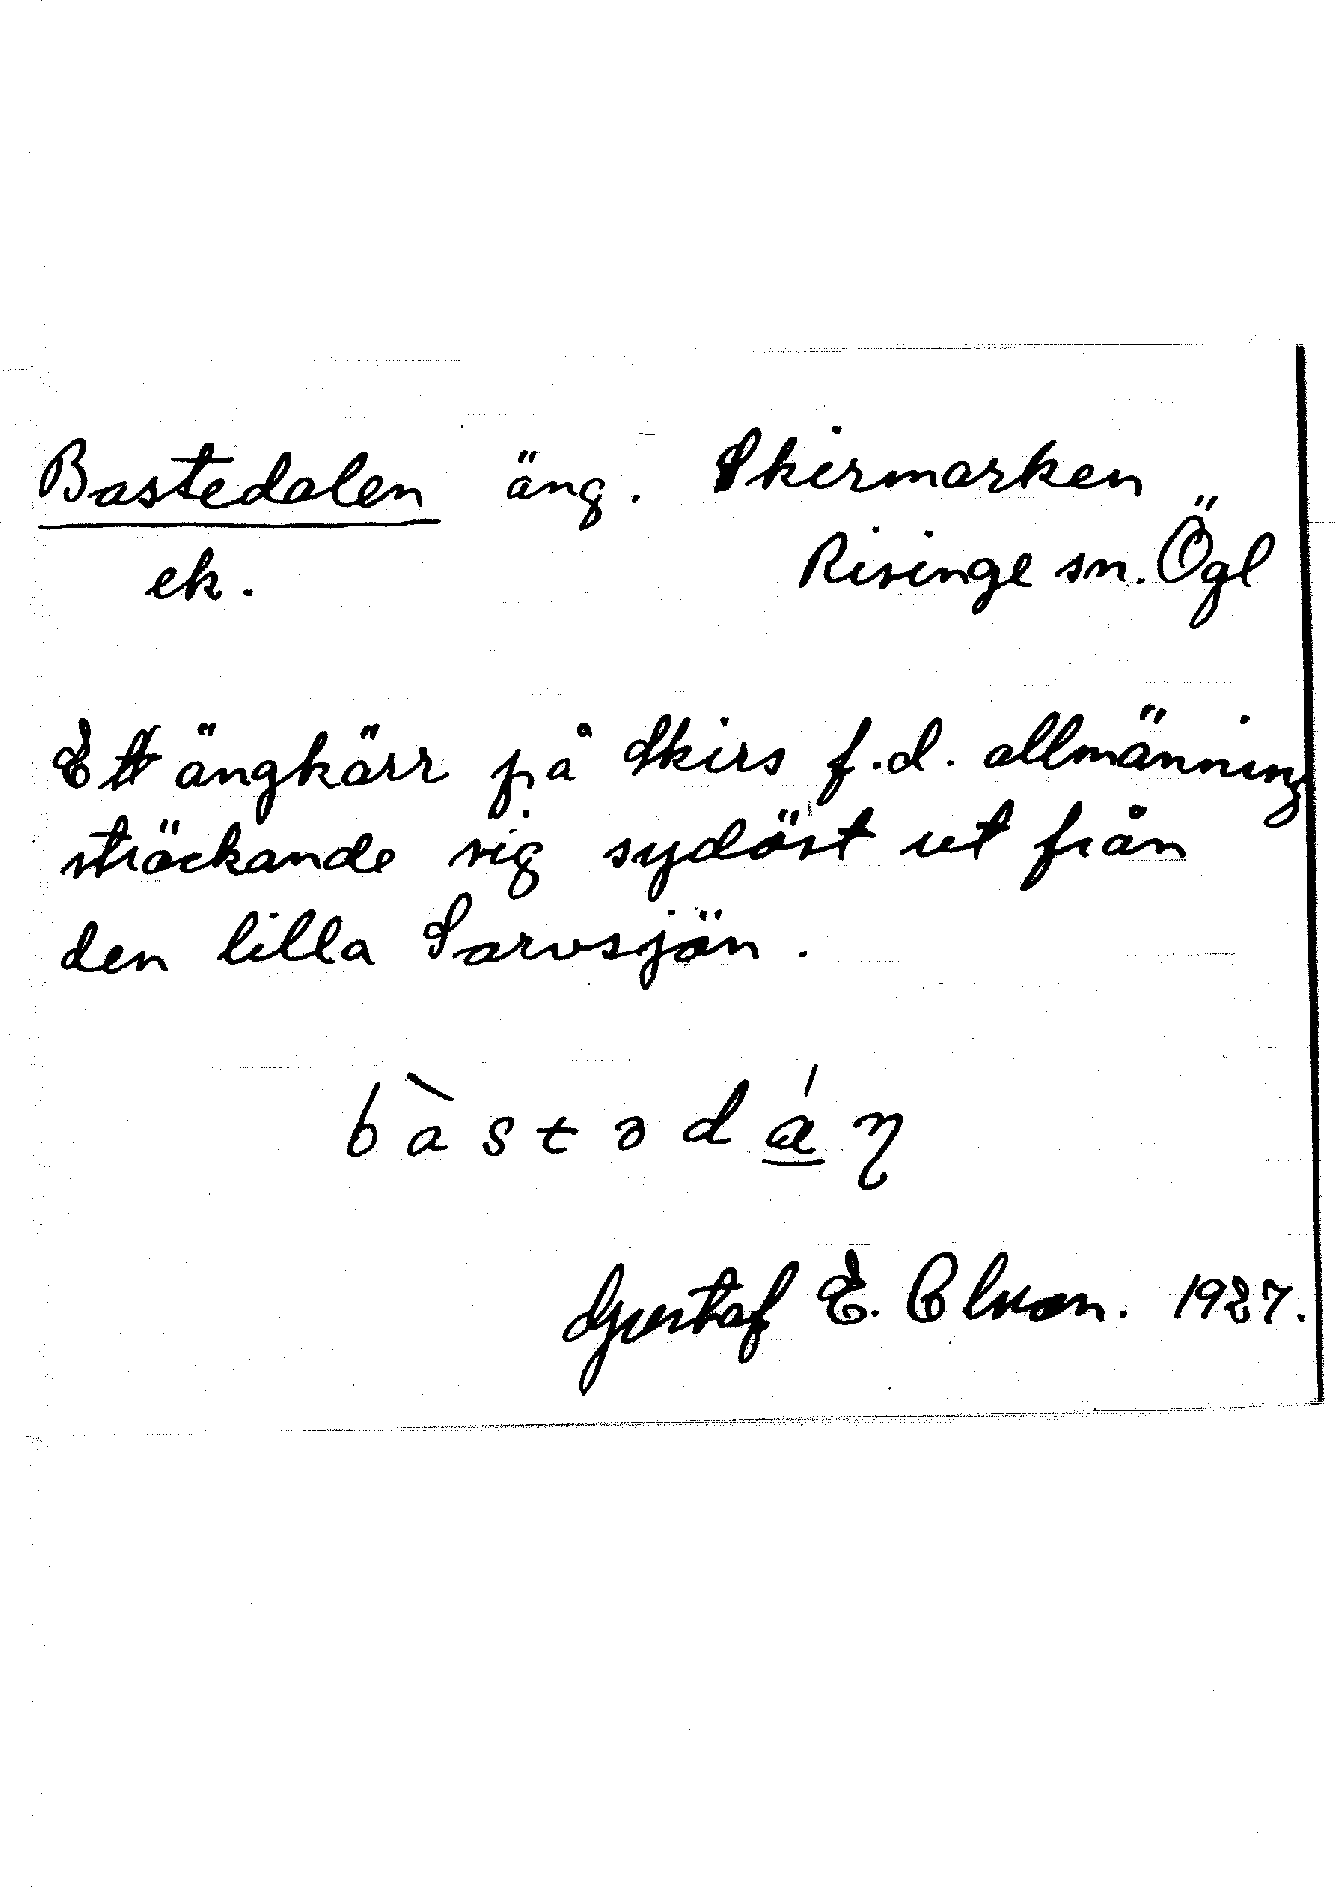 Bastedalen äng. Skirmarken
ek. Risinge sn. Ögl
Ett ängkärr på Skirs f.d. allmänning
sträckande sig sydöst ut från
den lilla Sarvsjön.
bàstədáη
Gustaf E. Clvan. 1927.